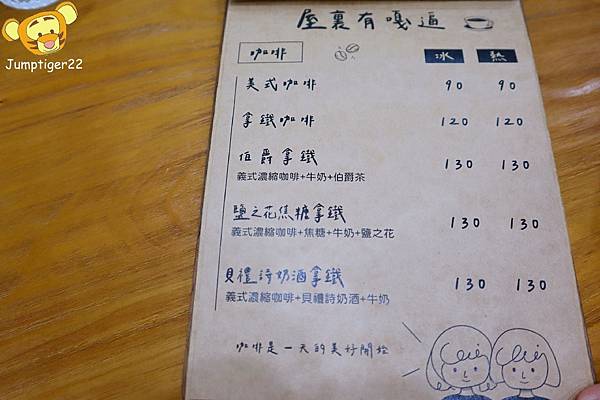 Jumptiger22
屋裏有嘎逼
咖啡 冰 熱
美式咖啡 90 90
拿鐵咖啡 120 120
伯爵拿鐵 130 130
義式濃縮咖啡+牛奶+伯爵茶
鹽之花焦糖拿鐵 130 130
義式濃縮咖啡+焦糖+牛奶+鹽之花
貝禮詩奶酒拿鐵 130 130
義式濃縮咖啡+貝禮詩奶酒+牛奶
咖啡是一天的美好開始